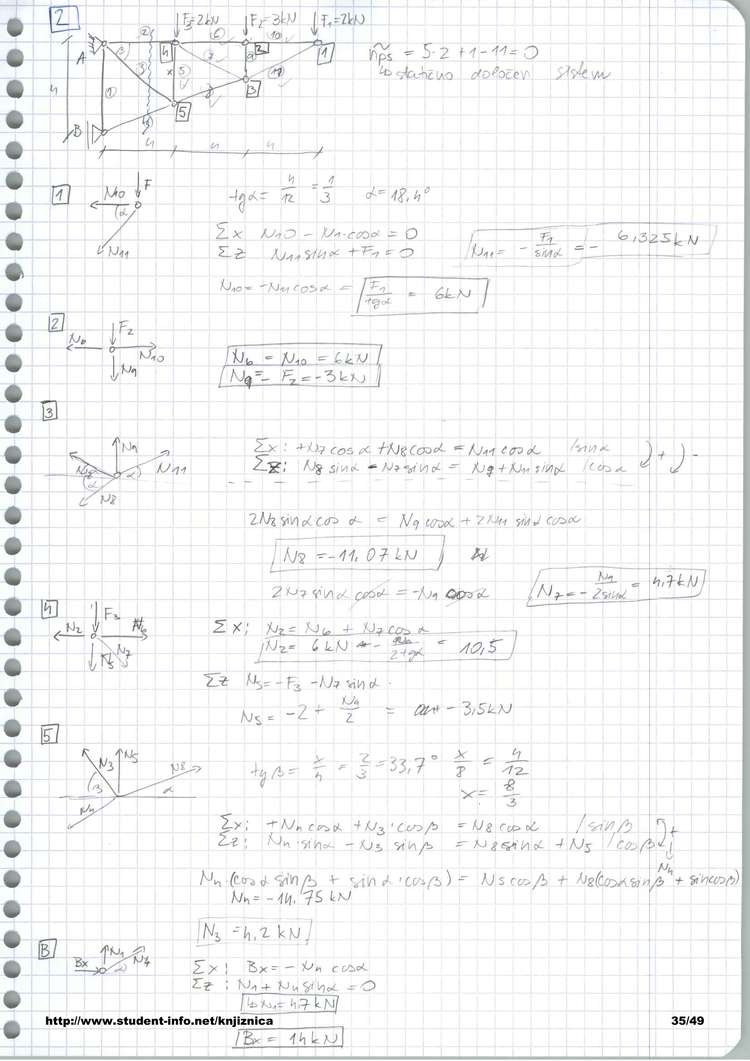 2
F3=2kN F2=3kN F1=2kN
A B
4
4 4 4
ñps = 5·2+1-11=0
↳ statično določen sistem
1
N10 F
α
N11
tgα = 4/12 = 1/3 α=18,4°
Σx N10 - N11·cosα = 0
Σz N11 sinα + F1 = 0
N11 = - F1/sinα = - 6,325kN
N10 = -N11 cosα = F1/tgα = 6kN
2
F2
N6 N10
N9
N6 = N10 = 6kN
N9 = - F2 = -3kN
3
N9
N7 N11
α α
N8
Σx: +N7 cosα + N8 cosα = N11 cosα /sinα
Σz: N8 sinα - N7 sinα = N9+N11 sinα /cosα
+ -
2N8 sinα cosα = N9 cosα + 2N11 sinα cosα
N8 = -11,07 kN
2N7 sinα cosα = -N9 cosα
N7 = - N9/2sinα = 4,7kN
4
F3
N2 N6
N5 N7
Σx: N2 = N6 + N7 cosα
N2 = 6kN - N9/2tgα = 10,5
Σz N5 = -F3 - N7 sinα
N5 = -2 + N9/2 = -3,5kN
5
N3 N5 N8
β α
N4
tgβ = x/4 = 2/3 = 33,7° x/8 = 4/12
x = 8/3
Σx: +N4 cosα + N3·cosβ = N8 cosα /sinβ
Σz: N4·sinα - N3 sinβ = N8 sinα + N5 /cosβ
+
N4
N4·(cosα sinβ + sinα·cosβ) = N5 cosβ + N8(cosα sinβ + sinα cosβ)
N4 = -14,75 kN
N3 = 4,2 kN
B
N1 N4
Bx α
Σx: Bx = -N4 cosα
Σz: N1 + N4 sinα = 0
↳ N1 = 4,7kN
Bx = 14kN
http://www.student-info.net/knjiznica 35/49